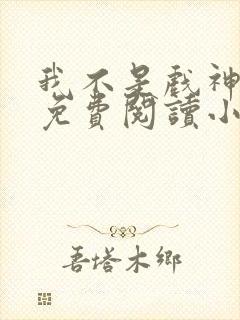 我不是戲神
免費閱讀小
吾塔木鄉